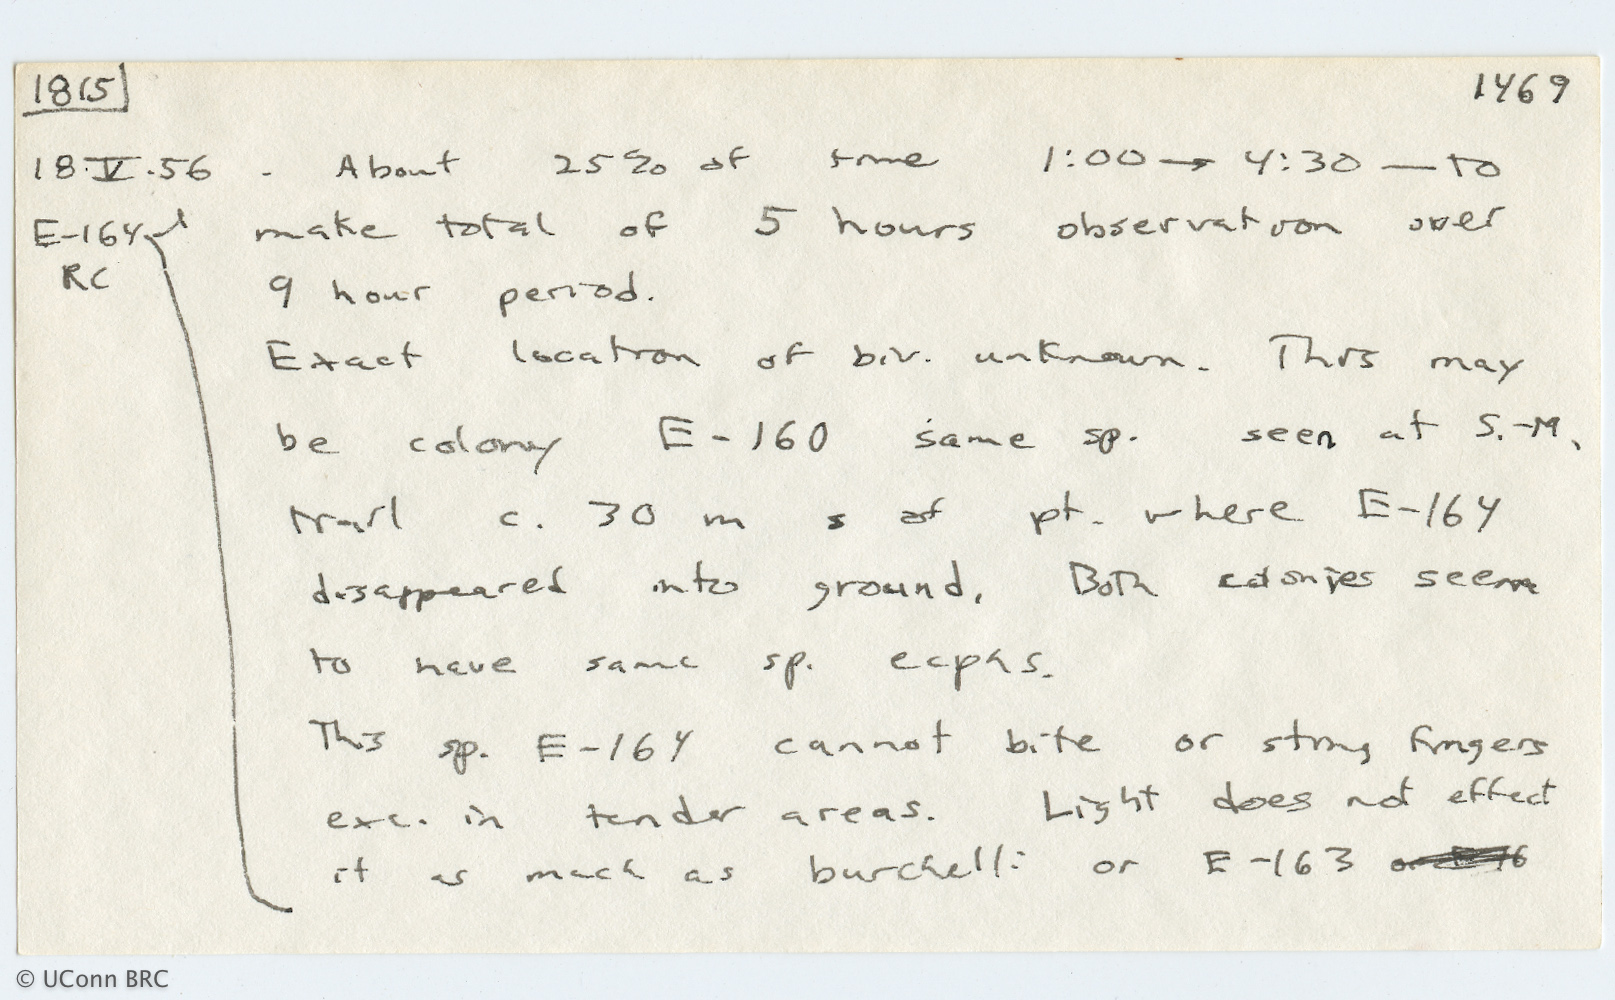 1815 1469
18.V.56 - About 25% of time 1:00 → 4:30 — to
E-164 make total of 5 hours observation over
RC 9 hour period.
Exact location of biv. unknown. This may
be colony E-160 same sp. seen at S.-M.
trail c. 30 m s of pt. where E-164
disappeared into ground. Both colonies seem
to have same sp. ecphs.
This sp. E-164 cannot bite or sting fingers
exc. in tender areas. Light does not effect
it as much as burchelli or E-163
© UConn BRC